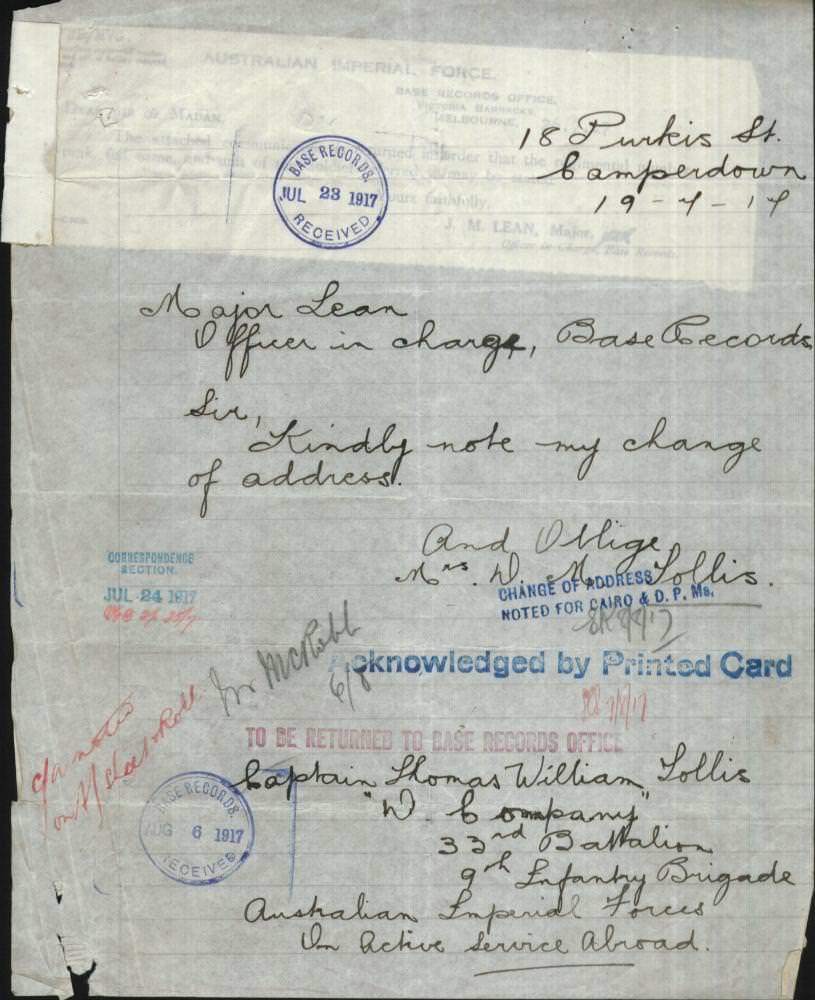 AUSTRALIAN IMPERIAL FORCE.
BASE RECORDS OFFICE,
VICTORIA BARRACKS,
MELBOURNE,
MADAM,
The attached
order that the
rank,
may be
faithfully,
J. M. LEAN, Major,
Officer in Charge, Base Records.
BASE RECORDS.
JUL 23 1917
RECEIVED
18 Purkis St.
Camperdown
19-7-17
Major Lean
Officer in charge, Base Records
Sir,
Kindly note my change
of address.
And Oblige
Mrs. W. M. Tollis.
CORRESPONDENCE
SECTION.
JUL 24 1917
CHANGE OF ADDRESS
NOTED FOR CAIRO & D. P. Ms.
Mr McRobb
6/8
Acknowledged by Printed Card
7/8/17
TO BE RETURNED TO BASE RECORDS OFFICE
c/a noted
on
Roll
BASE RECORDS.
AUG 6 1917
RECEIVED
Captain Thomas William Tollis
"D. Company"
33rd Battalion
9th Infantry Brigade
Australian Imperial Forces
On Active Service Abroad.